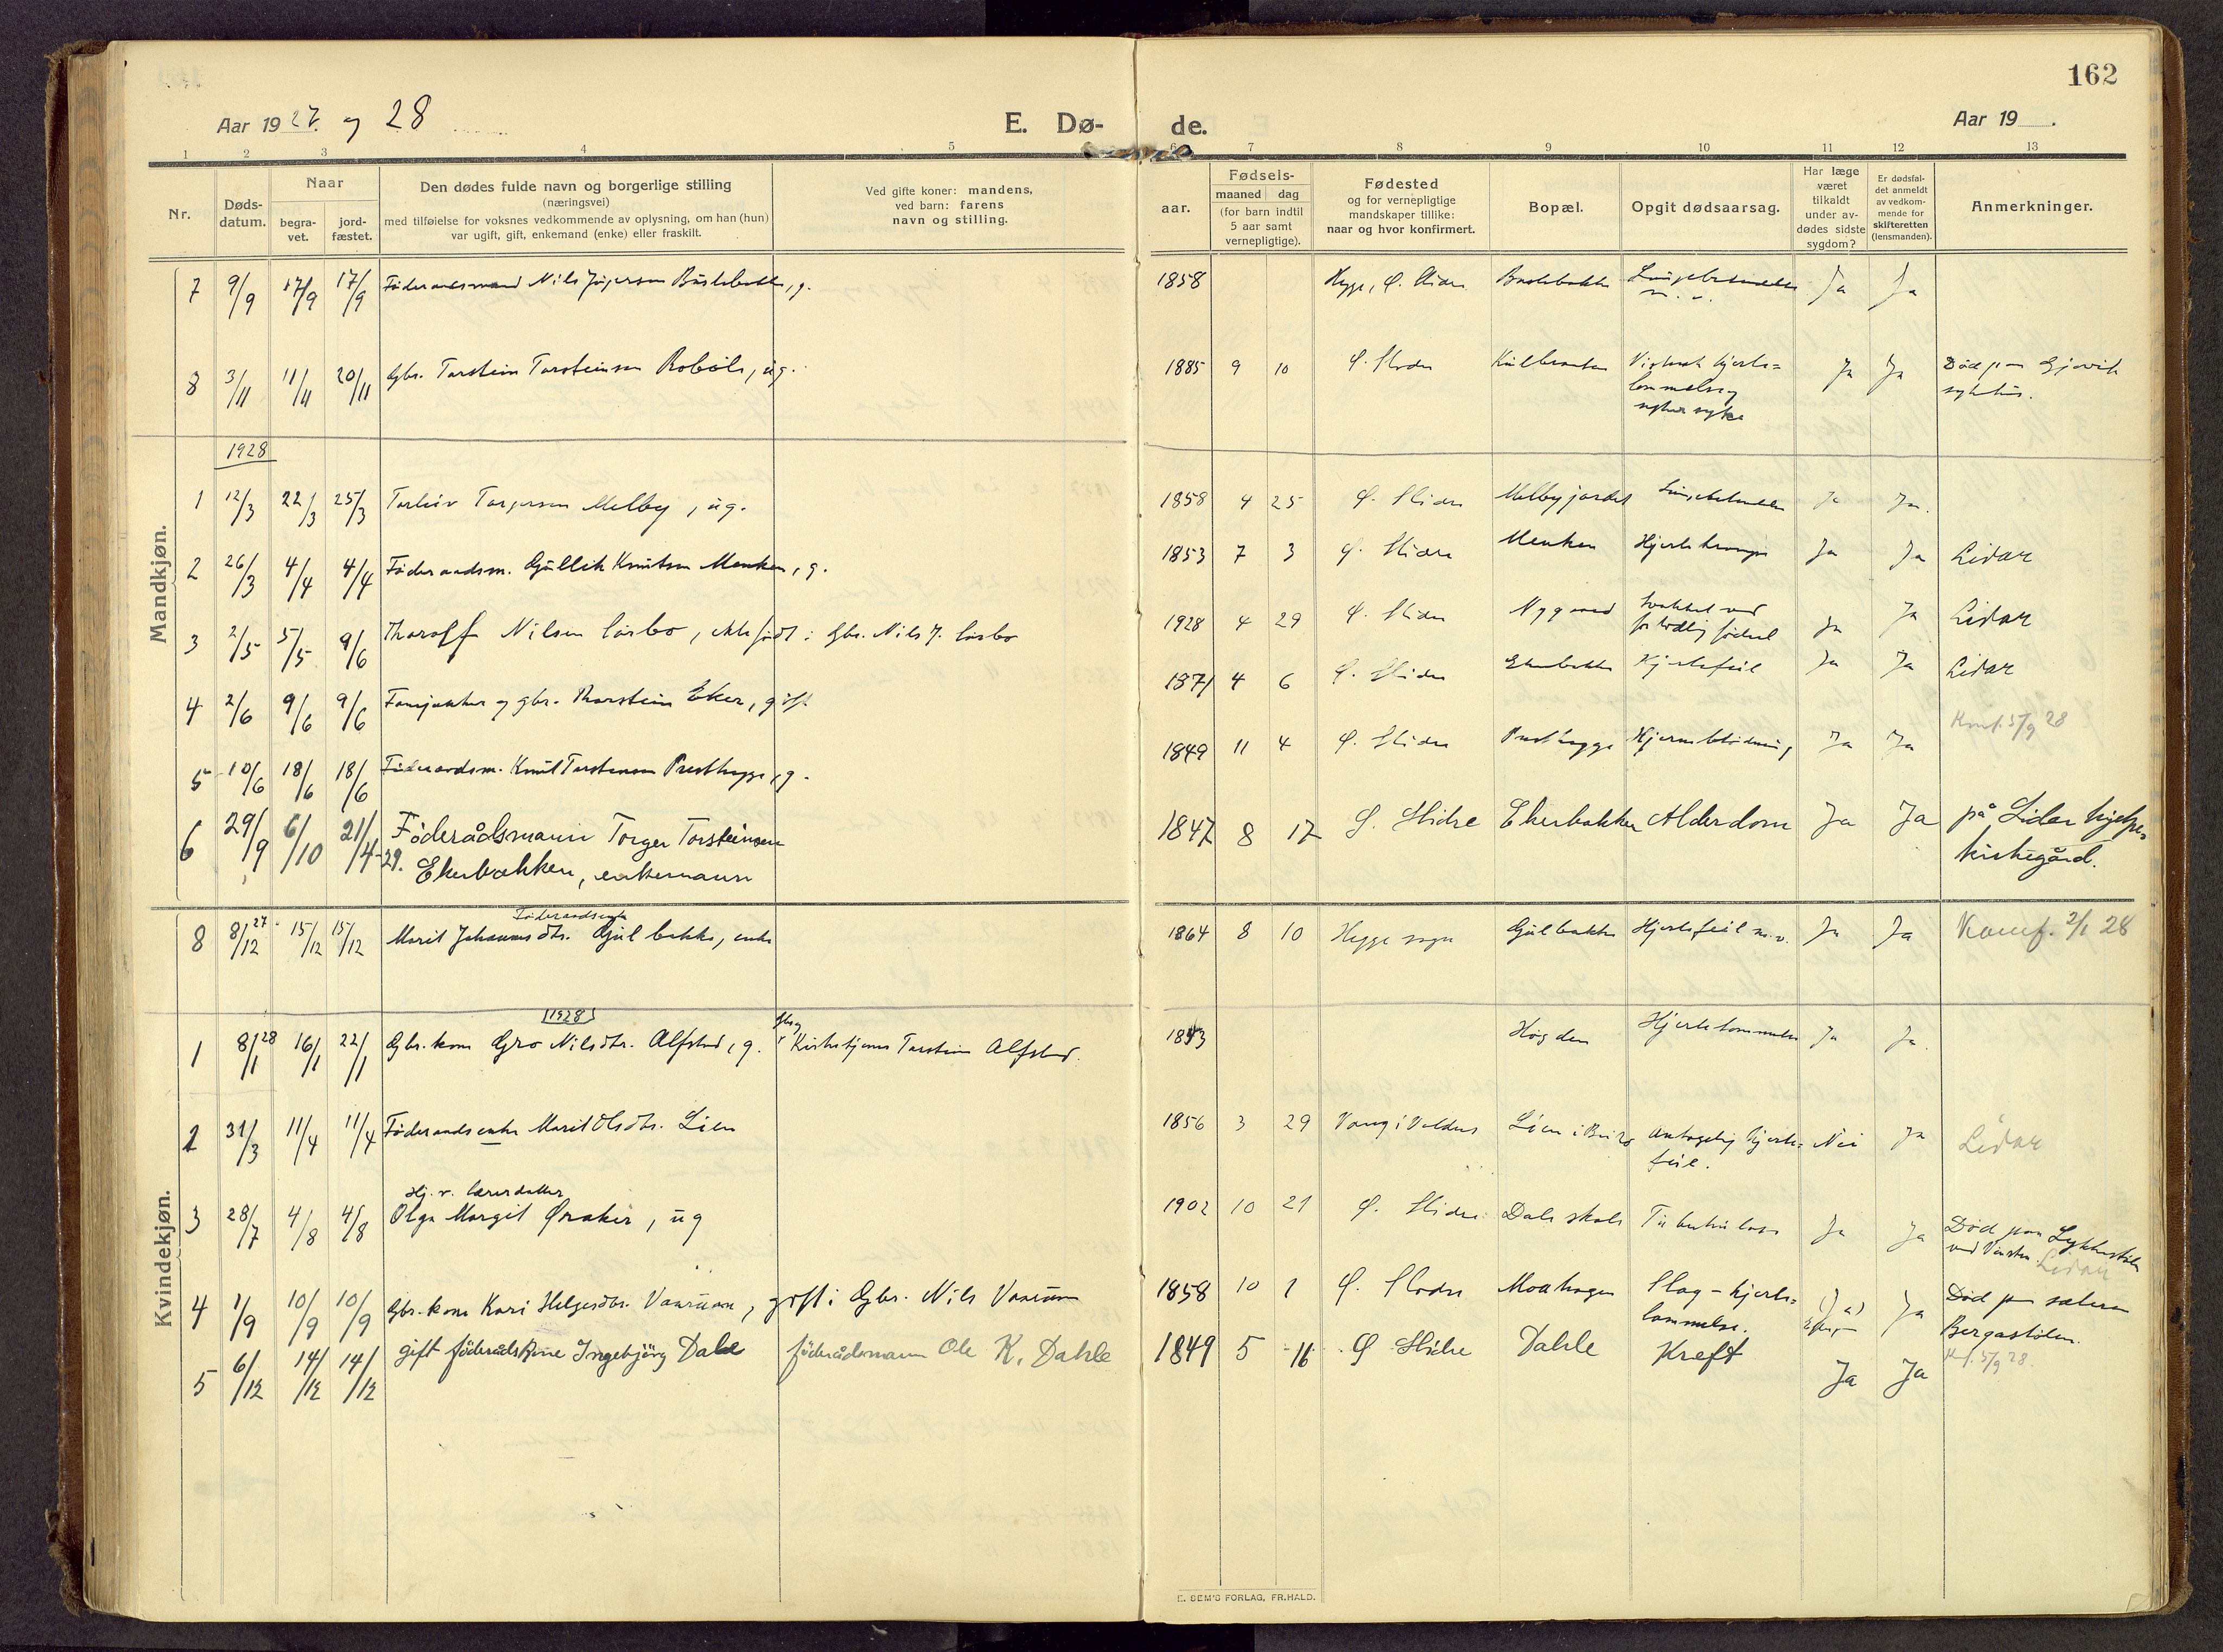 162
Aar 1927. og 28
E. Dø-
de.
Aar 19 .
1 2 3 4 5 6 7 8 9 10 11 12 13
Nr.
Døds-
datum.
Naar
begra-
vet.
jord-
fæstet.
Den dødes fulde navn og borgerlige stilling
(næringsvei)
med tilføielse for voksnes vedkommende av oplysning, om han (hun)
var ugift, gift, enkemand (enke) eller fraskilt.
Ved gifte koner: mandens,
ved barn: farens
navn og stilling.
aar.
Fødsels-
maaned dag
(for barn indtil
5 aar samt
vernepligtige).
Fødested
og for vernepligtige
mandskaper tillike:
naar og hvor konfirmert.
Bopæl.
Opgit dødsaarsag.
Har læge
været
tilkaldt
under av-
dødes sidste
sygdom?
Er dødsfal-
det anmeldt
av vedkom-
mende for
skifteretten
(lensmanden).
Anmerkninger.
Mandkjøn.
7 9/9 17/9 17/9 Föderaadsmand Nils 1858 Hegge, Ø. Slidre Ja Ja
8 3/11 11/11 20/11 Gbr. Torstein Torsteinsen Robøle, ug. 1885 9 10 Ø. Slidre hjerte=
lammelse
Ja Ja Död paa Gjøvik
sykehus.
1928
1 12/3 22/3 25/3 Torleiv Torgersen Melby, ug. 1858 4 25 Ø. Slidre Melbyjordet Ja Ja.
2 26/3 4/4 4/4 Föderaadsm. Gullik Knutsen Menken, g. 1853 7 3 Ø. Slidre Menken Hjertekrampe Ja Ja Lidar
3 2/5 5/5 9/6 Tharolf Nilsen Lisbo, ekte født: Gbr. Nils J. Lisbo 1928 4 29 Ø. Slidre Nygaard Svakhet ved
for tidlig födsel Ja Ja Lidar
4 2/6 9/6 9/6 Fanejunker og gbr. Thorstein Eker, gift 1871 4 6 Ø. Slidre Ekerbakke Hjertefeil Ja Ja Lidar
5 10/6 18/6 18/6 Föderaadsm. Knut Torsteinsen Presthegge, g. 1849 11 4 Ø. Slidre Presthegge Hjerneblödning Ja Ja Konf. 5/9 28
6 29/9 6/10 21/4-29. Föderådsmann Torger Torsteinsen
Ekerbakken, enkemann
1847 8 17 Ø. Slidre Ekerbakken Alderdom Ja Ja på Lidar hjelpe-
kirkegård.
Kvindekjøn.
8 8/12 27 15/12 15/12 Föderaadsenke
Marit Johannesdtr. Gulbakke, enke 1864 8 10 Hegge sogn Gulbakke Hjertefeil m.v. Ja Ja Konf. 2/1 28
1928
1 8/1 28 16/1 22/1 Gbr.kone Gro Nilsdtr. Alfstad, g. Gbr. og
Kirketjener Torstein Alfstad. 1843 Høgden Hjertelammelse Ja Ja
2 31/3 11/4 11/4 Föderaadsenke Marit Olsdtr. Lien 1856 3 29 Vang i Valdres Lien i Antagelig hjerte=
feil. Nei Ja Lidar
3 28/7 4/8 4/8 Hj. v. lærerdatter
Olga Margit Øraker, ug 1902 10 21 Ø. Slidre Dale skole Tuberkulose Ja Ja Död paa Lykkestølen
Lidar
4 1/9 10/9 10/9 Gbr.kone Kari Helgesdtr. Vanrum, gift: Gbr. Nils Vanrum 1858 10 1 Ø. Slidre Moahagen Slag - hjerte=
lammelse. (Ja) Ja Död paa sæteren
Bergastølen.
Kf. 5/9 28.
5 6/12 14/12 14/12 gift föderådskone Ingebjörg Dahle föderådsmann Ole K. Dahle 1849 5 16 Ø Slidre Dahle Kreft Ja Ja
E. SEM'S FORLAG, FR.HALD.